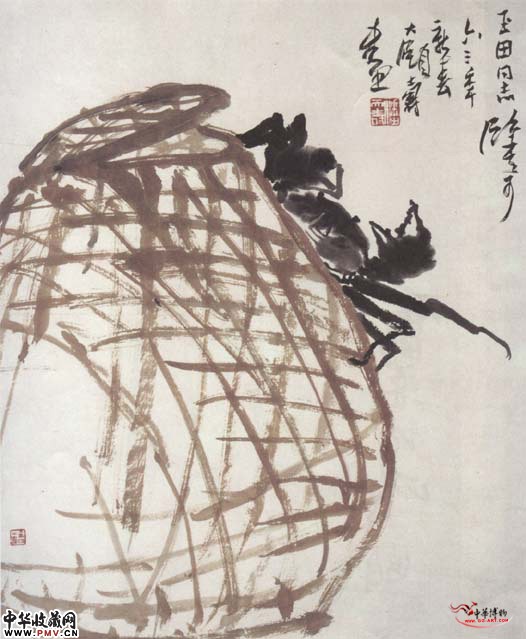 玉田同志
六三年
新春
大頤壽
者
中华收藏网
www.PMV.CN
中华博物
www.GG-ART.COM